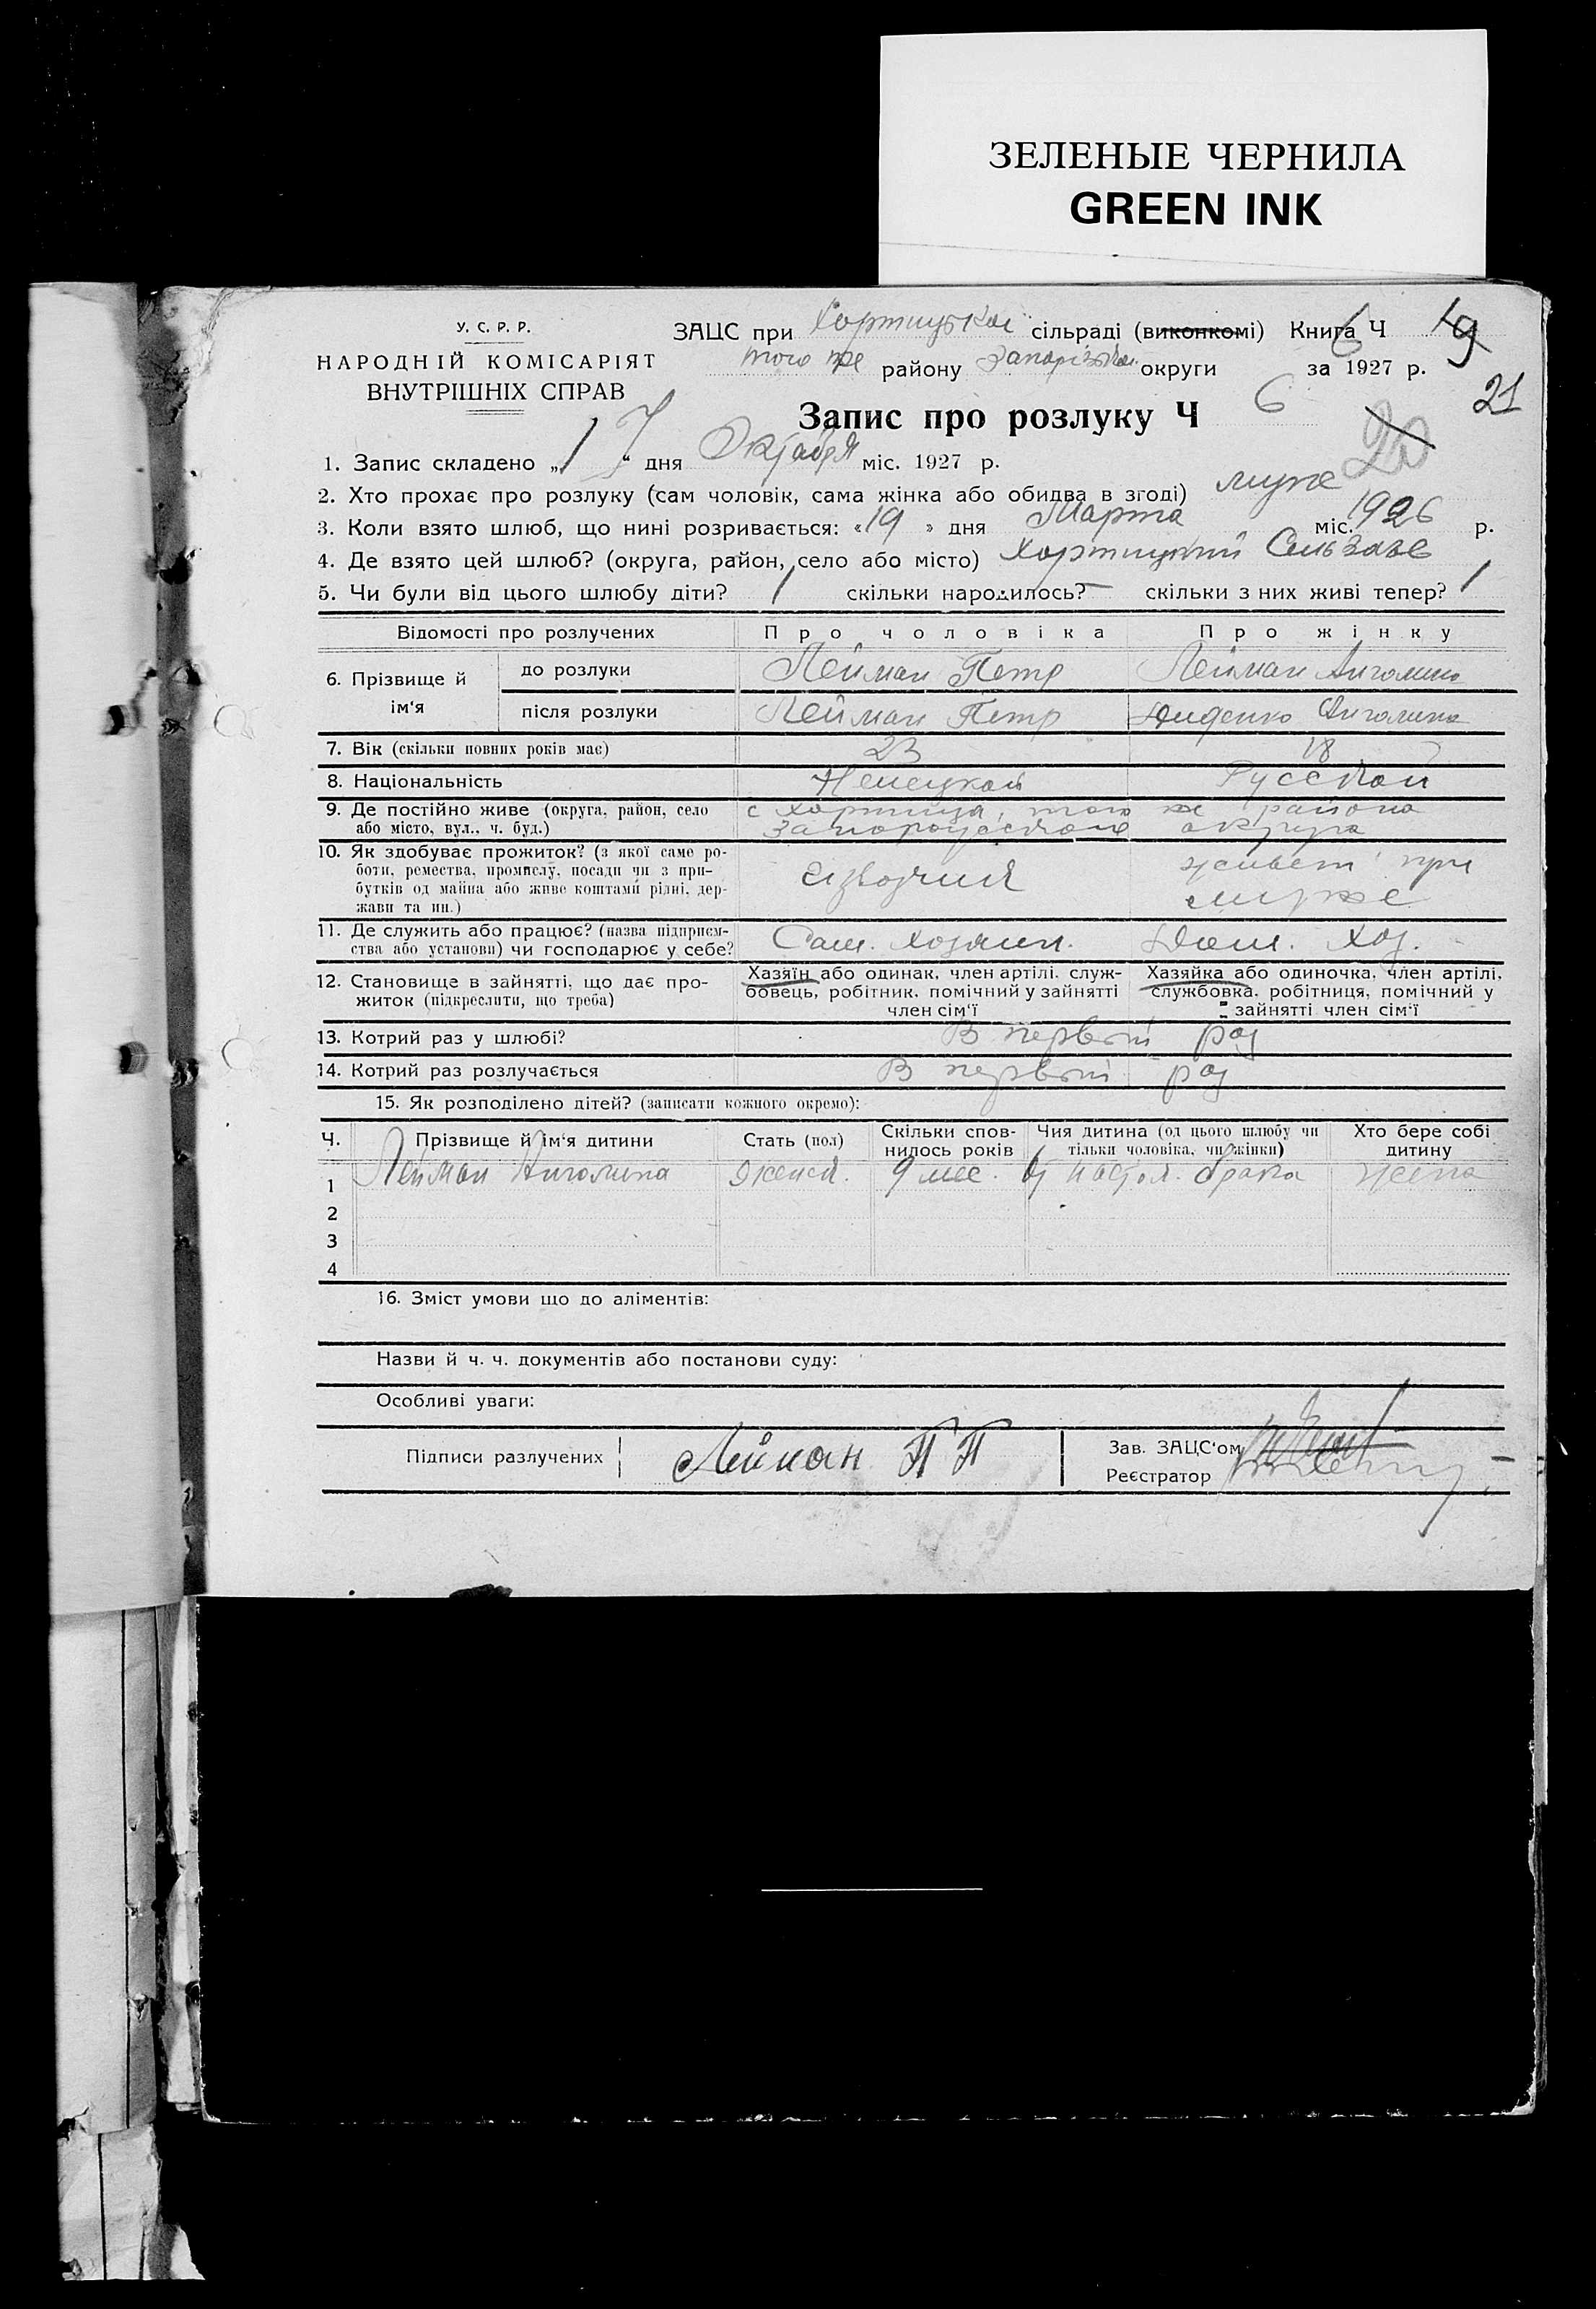 ЗЕЛЕНЫЕ ЧЕРНИЛА
GREEN INK
У. С. Р. Р.
НАРОДНІЙ КОМІСАРІЯТ
ВНУТРІШНІХ СПРАВ
ЗАЦС при Хортицькой сільраді (виконкомі) Книга Ч 19
того же району Запорізькой округи за 1927 р.
6
21
Запис про розлуку Ч 6
20
1. Запис складено „17“ дня Октября міс. 1927 р.
2. Хто прохає про розлуку (сам чоловік, сама жінка або обидва в згоді) муже
3. Коли взято шлюб, що нині розривається: «19» дня Марта міс. 1926 р.
4. Де взято цей шлюб? (округа, район, село або місто) Хортицкий
5. Чи були від цього шлюбу діти? 1 скільки народилось? — скільки з них живі тепер? 1
Відомості про розлучених Про чоловіка Про жінку
6. Прізвище й ім‘я до розлуки Лейман Петр Лейман Анголина
після розлуки Лейман Петр Диденко Анголина
7. Вік (скільки повних років має) 23 18
8. Національність Немецкой Русской
9. Де постійно живе (округа, район, село с Хортица, того же района
або місто, вул., ч. буд.) Запорожского округа
10. Як здобуває прожиток? (з якої саме ро-
боти, ремества, промислу, посади чи з при-
бутків од майна або живе коштами рідні, дер-
жави та ин.) Извозчик живет при муже
11. Де служить або працює? (назва підприєм-
ства або установи) чи господарює у себе? Сам. хозяин. Дом. Хоз.
12. Становище в зайнятті, що дає про-
житок (підкреслити, що треба)
Хазяїн або одинак, член артілі, служ-
бовець, робітник, помічний у зайнятті
член сім‘ї
Хазяйка або одиночка, член артілі,
службовка, робітниця, помічний у
зайнятті член сім‘ї
13. Котрий раз у шлюбі? В первый раз
14. Котрий раз розлучається В первый раз
15. Як розподілено дітей? (записати кожного окремо):
Ч. Прізвище й ім‘я дитини Стать (пол) Скільки спов-
нилось років Чия дитина (од цього шлюбу чи
тільки чоловіка, чи жінки) Хто бере собі
дитину
1 Лейман Анголина женск. 9 мес. от настоя. брака жена
2
3
4
16. Зміст умови що до аліментів:
Назви й ч. ч. документів або постанови суду:
Особливі уваги:
Підписи разлучених Лейман П П
Зав. ЗАЦС‘ом
Реєстратор